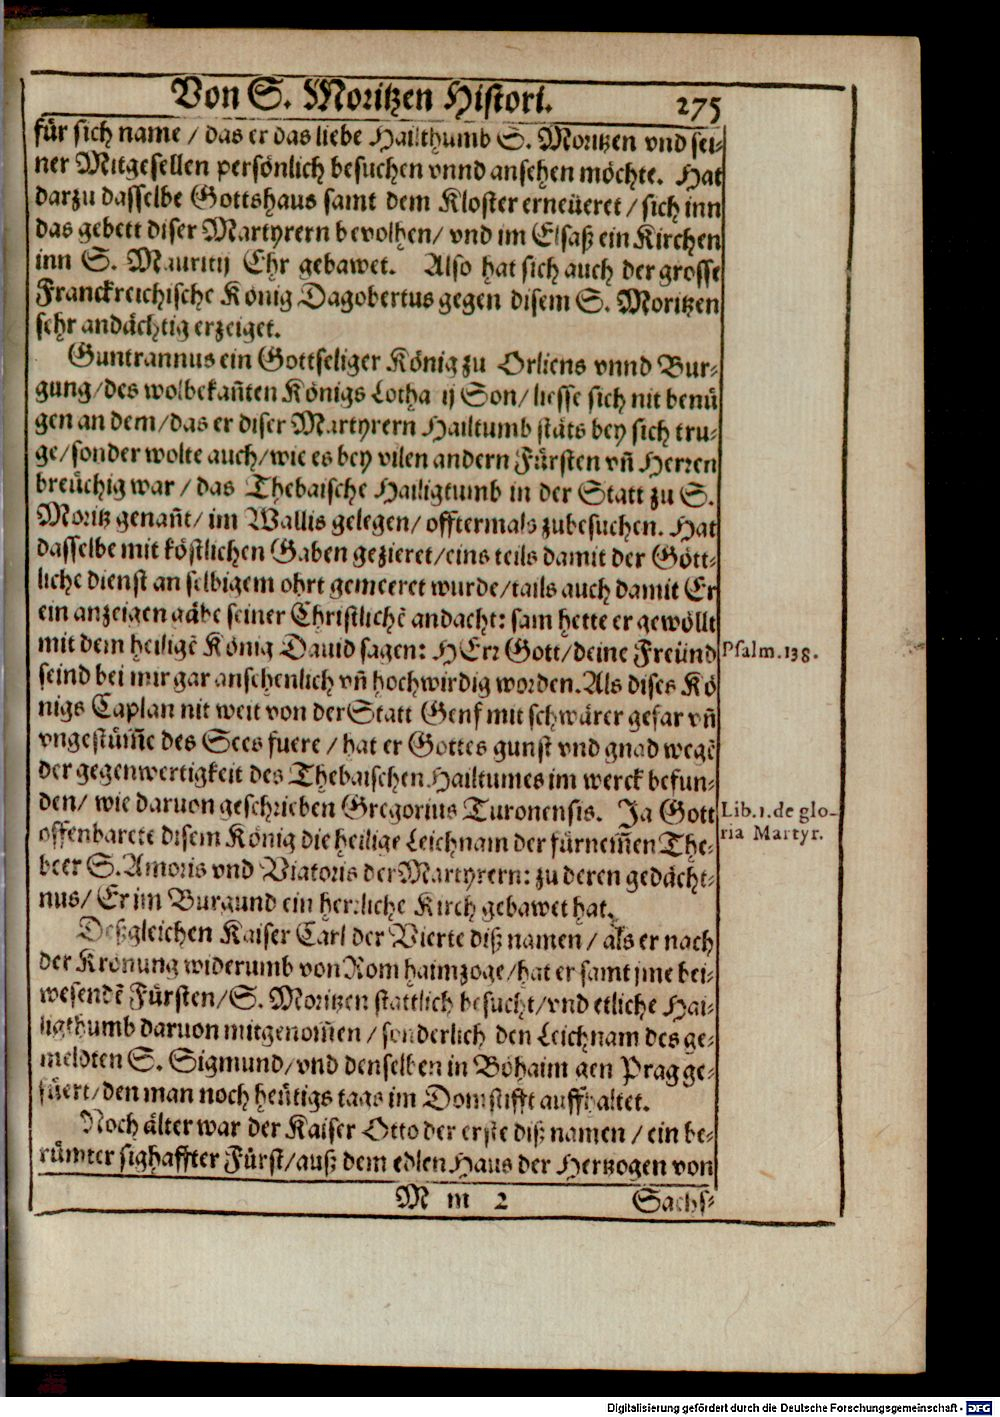 Von S. Moritzen Histori. 275
für sich name / das er das liebe Hailthumb S. Moritzen vnd sei-
ner Mitgesellen persönlich besuchen vnnd ansehen möchte. Hat
darzu dasselbe Gottshaus samt dem Kloster erneüeret / sich inn
das gebett diser Martyrern bevolhen / vnd im Elsaß ein Kirchen
inn S. Mauritij Ehr gebawet. Also hat sich auch der grosse
Franckreichische König Dagobertus gegen disem S. Moritzen
sehr andächtig erzeiget.
Guntrannus ein Gottseliger König zu Orliens vnnd Bur-
gung / des wolbekañten Königs Lotha ij Son / liesse sich nit benů
gen an dem / das er diser Martyrern Hailtumb stäts bey sich tru-
ge / sonder wolte auch / wie es bey vilen andern Fürsten vñ Herren
breüchig war / das Thebaische Hailigtumb in der Statt zu S.
Moritz genañt / im Wallis gelegen / offtermals zubesuchen. Hat
dasselbe mit köstlichen Gaben gezieret / eins teils damit der Gött-
liche dienst an selbigem ohrt gemeeret wurde / tails auch damit Er
ein anzeigen gäbe seiner Christlichē andacht: sam hette er gewöllt
mit dem heiligē König Dauid sagen: HErr Gott / deine Freünd
Psalm. 138.
seind bei mir gar ansehenlich vñ hochwirdig worden. Als dises Kö
nigs Caplan nit weit von der Statt Genf mit schwärer gefar vñ
vngestům̃e des Sees fuere / hat er Gottes gunst vnd gnad wegē
der gegenwertigkeit des Thebaischen Hailtumes im werck befun-
den / wie daruon geschrieben Gregorius Turonensis. Ja Gott
Lib. 1. de glo-
ria Martyr.
offenbarete disem König die heilige Leichnam der fürnem̃en The-
beer S. Amoris vnd Viatoris der Martyrern: zu deren gedächt-
nus / Er im Burgund ein herrliche Kirch gebawet hat.
Deßgleichen Kaiser Carl der Vierte diß namen / als er nach
der Krönung widerumb von Rom haimzoge / hat er samt jme bei-
wesendē Fürsten / S. Moritzen stattlich besucht / vnd etliche Hai-
ligthumb daruon mitgenom̃en / sonderlich den Leichnam des ge-
meldten S. Sigmund / vnd denselben in Böhaim gen Prag ge-
füert / den man noch heütigs tags im Domstifft auffhaltet.
Noch älter war der Kaiser Otto der erste diß namen / ein be-
rümter sighaffter Fürst / auß dem edlen Haus der Hertzogen von
M m 2 Sachs-
Digitalisierung gefördert durch die Deutsche Forschungsgemeinschaft - DFG